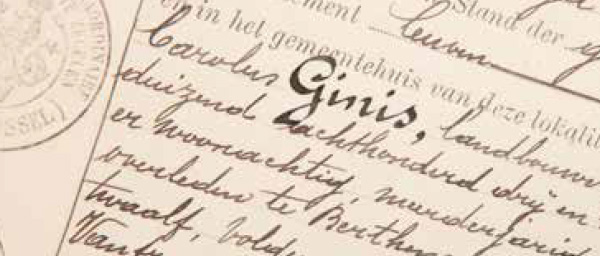 Stand der
ement Leuven
en in het gemeentehuis van deze lokalit
Carolus Ginis, landbouwer
duizend achthonderd drij en
er woonachtig, meerderjarig
overleden te Berthem
twaalf, volde
SSEL)